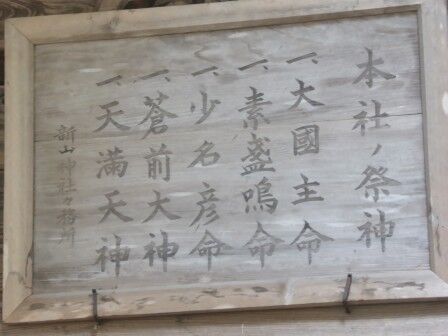 本社ノ祭神
一、大國主命
一、素盞嗚命
一、少名彦命
一、蒼前大神
一、天満天神
新山神社々務所